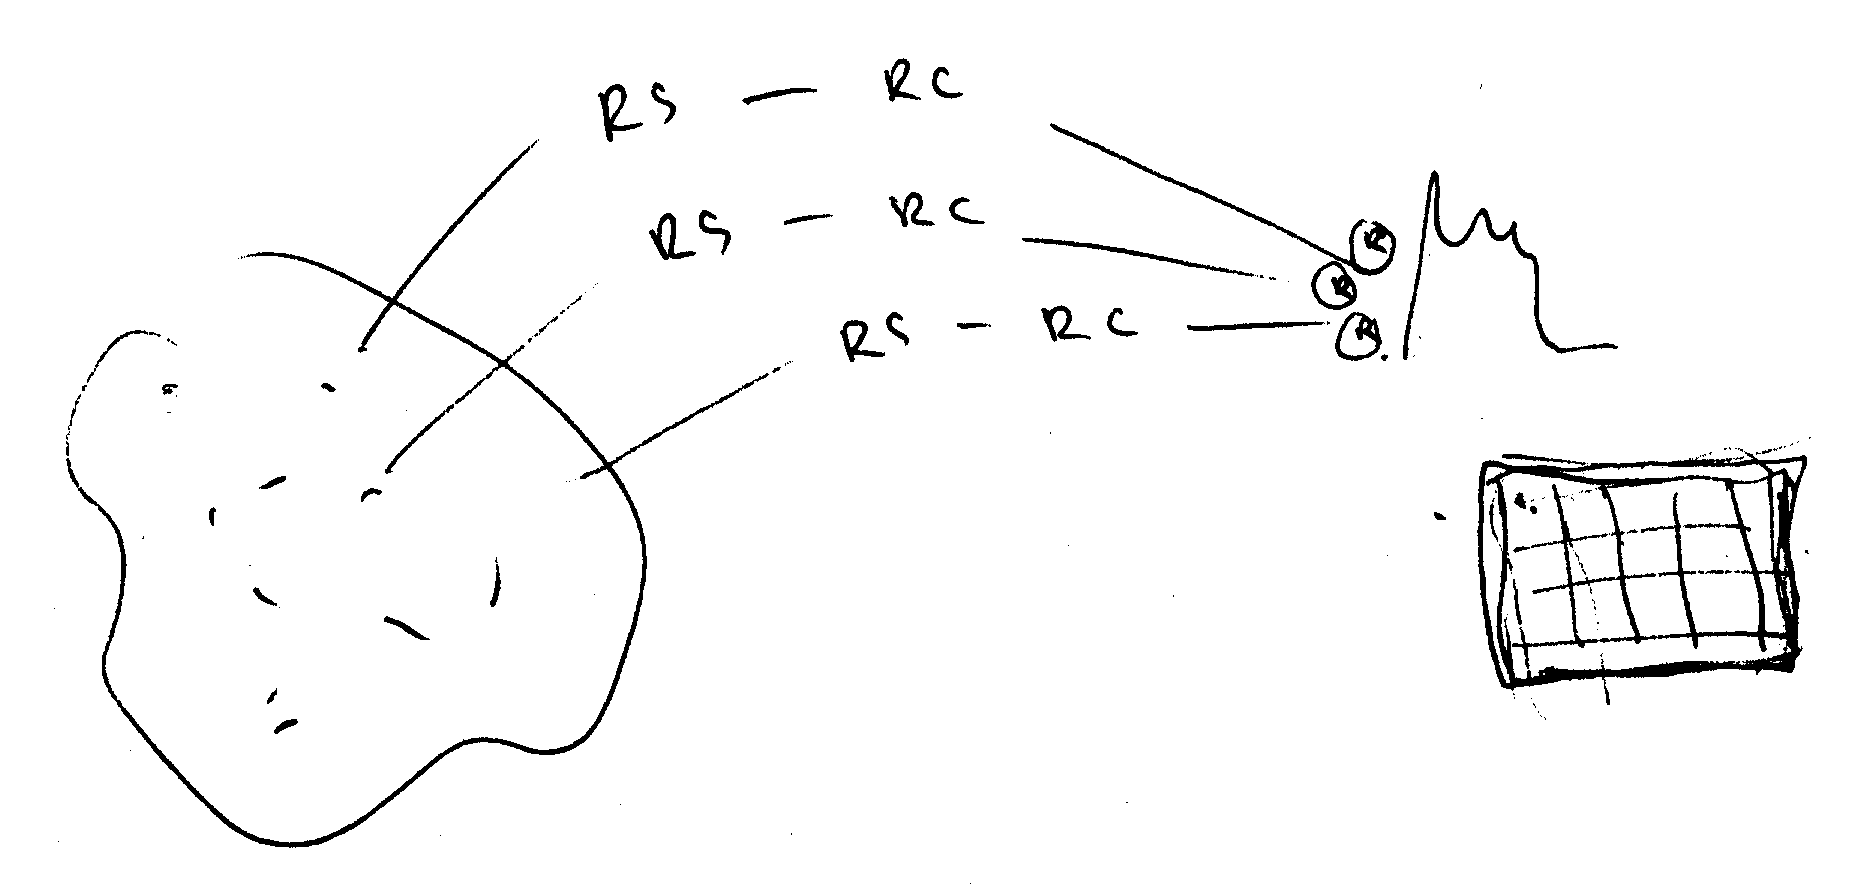 RS — RC
RS — RC
RS — RC
R
R
R